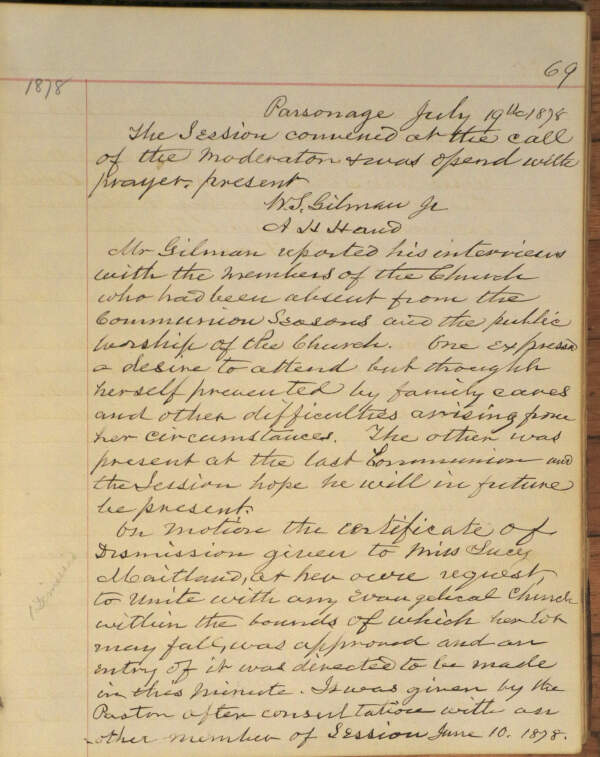 69
1878
Parsonage July 19th 1878
The Session convened at the call
of the Moderator & was opend with
prayer. present
W. S. Gilman Jr
A H Hand
Mr Gilman reported his interviews
with the members of the Church
who had been absent from the
Communion Seasons and the public
worship of the Church. One expressed
a desire to attend but thought
herself prevented by family cares
and other difficulties arising from
her circumstances. The other was
present at the last Communion and
the Session hope he will in future
be present.
On motion the certificate of
Dismission given to Miss Lucy
Maitland, at her own request
to Unite with any Evangelical Church
within the bounds of which her lot
may fall, was approved and an
entry of it was directed to be made
in this minute. It was given by the
Pastor after consultation with an
other member of Session June 10. 1878.
1 Dismissed